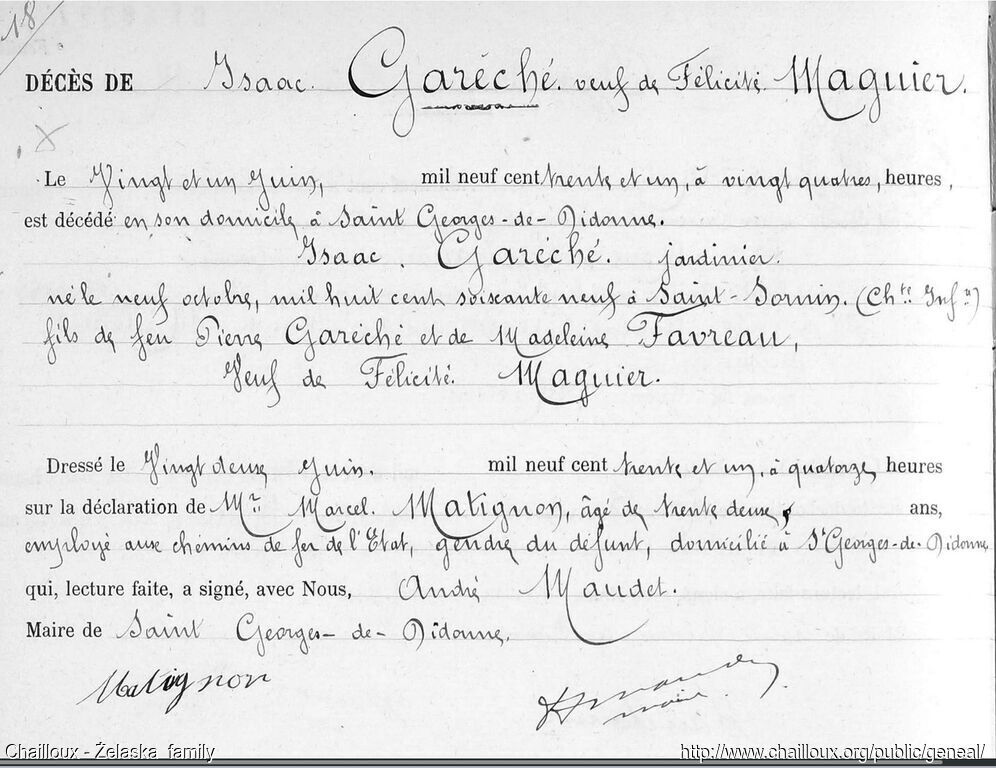 18
DÉCÈS DE Isaac. Garéché. veuf de Félicité. Maguier.
Le Vingt et un Juin, mil neuf cent trente et un, à vingt quatres, heures,
est décédé en son domicile, à Saint Georges-de-Didonne.
Isaac. Garéché. jardinier.
né le neuf octobre, mil huit cent soixante neuf à Saint-Sornin. (Chte Infre)
fils de feu Pierre Garéché et de Madeleine Favreau,
Veuf de Félicité. Maguier.
Dressé le Vingt deux Juin. mil neuf cent trente et un, à quatorze heures
sur la déclaration de Mr. Marcel. Matignon, âgé de trente deux, ans,
employé aux chemins de fer de l'Etat, gendre du défunt, domicilié à St Georges-de-Didonne
qui, lecture faite, a signé, avec Nous, André Maudet.
Maire de Saint Georges-de-Didonne.
Matignon
Chailloux - Żelaska family
http://www.chailloux.org/public/geneal/